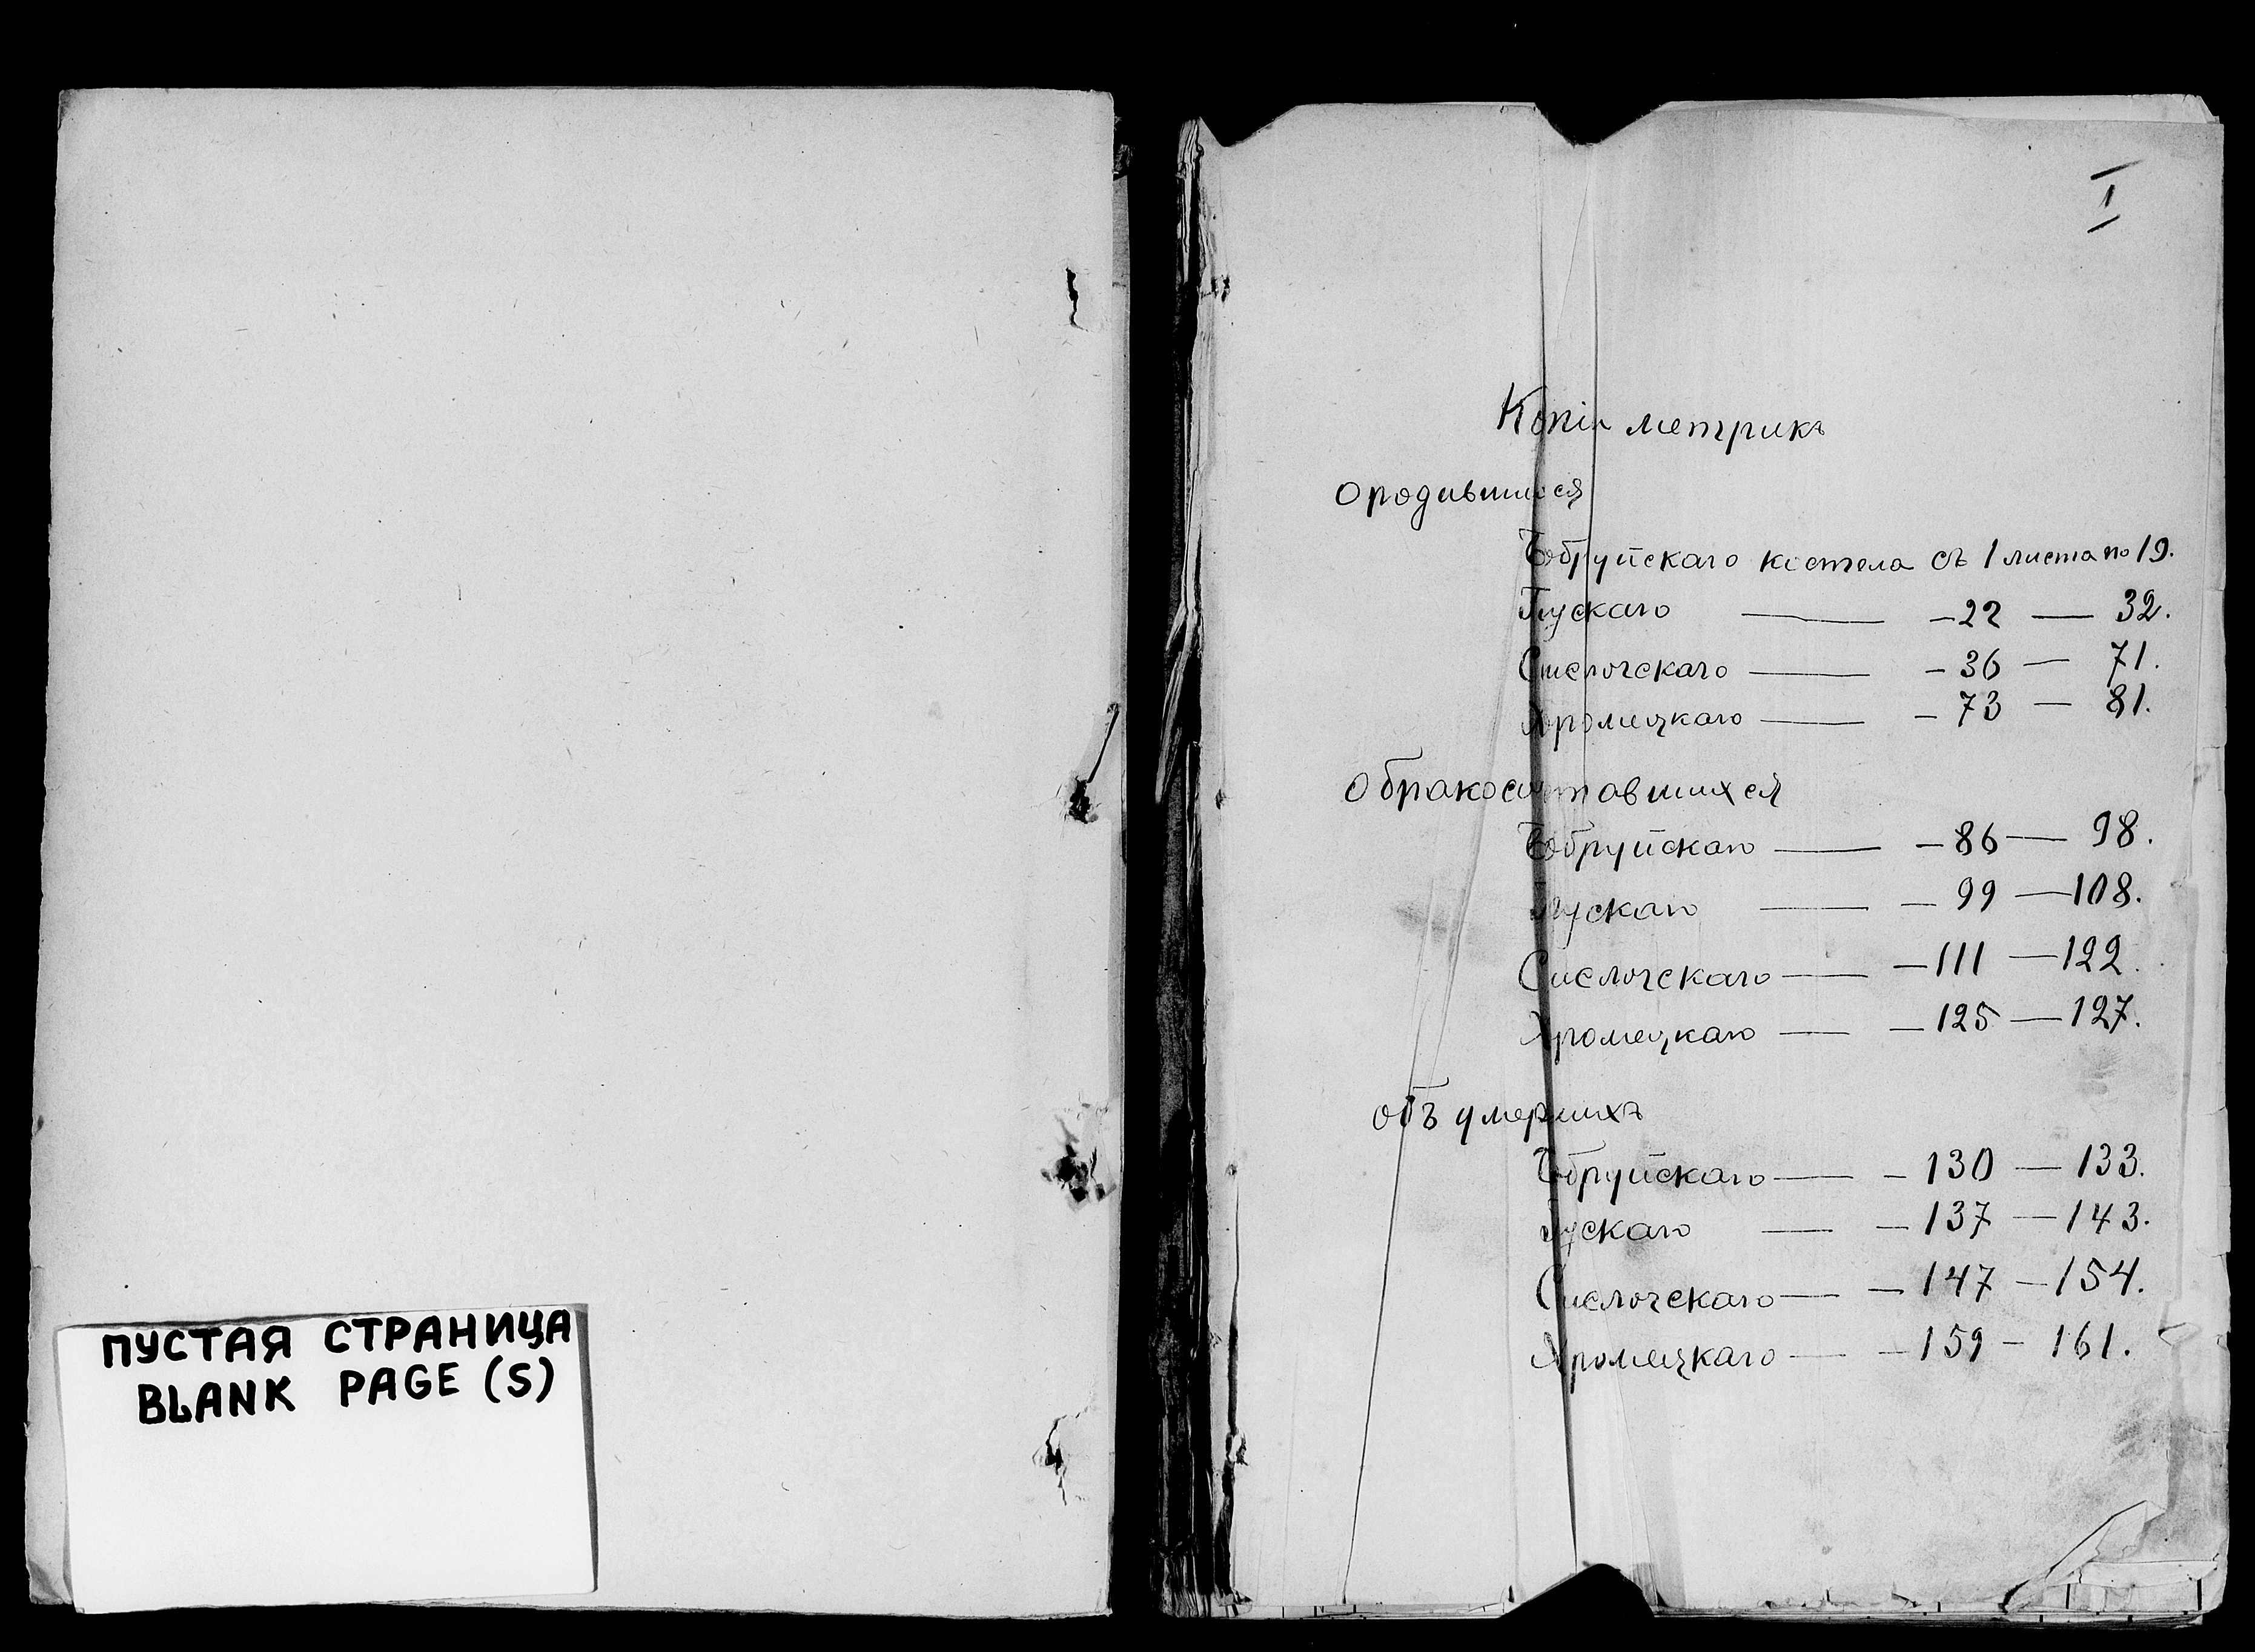 ПУСТАЯ СТРАНИЦА
BLANK PAGE (S)
I
Копіи метрикъ
О родившихся
Бобруйскаго костела съ 1 листа по 19.
Глускаго — – 22 — 32.
Свислочскаго — – 36 — 71.
Хромецкаго — – 73 — 81.
О бракосочетавшихся
Бобруйскаго — – 86 — 98.
Глускаго — – 99 — 108.
Свислочскаго — – 111 — 122.
Хромецкаго — – 125 — 127.
объ умершихъ
Бобруйскаго — – 130 — 133.
Глускаго — – 137 — 143.
Свислочскаго — – 147 — 154.
Хромецкаго — – 159 – 161.